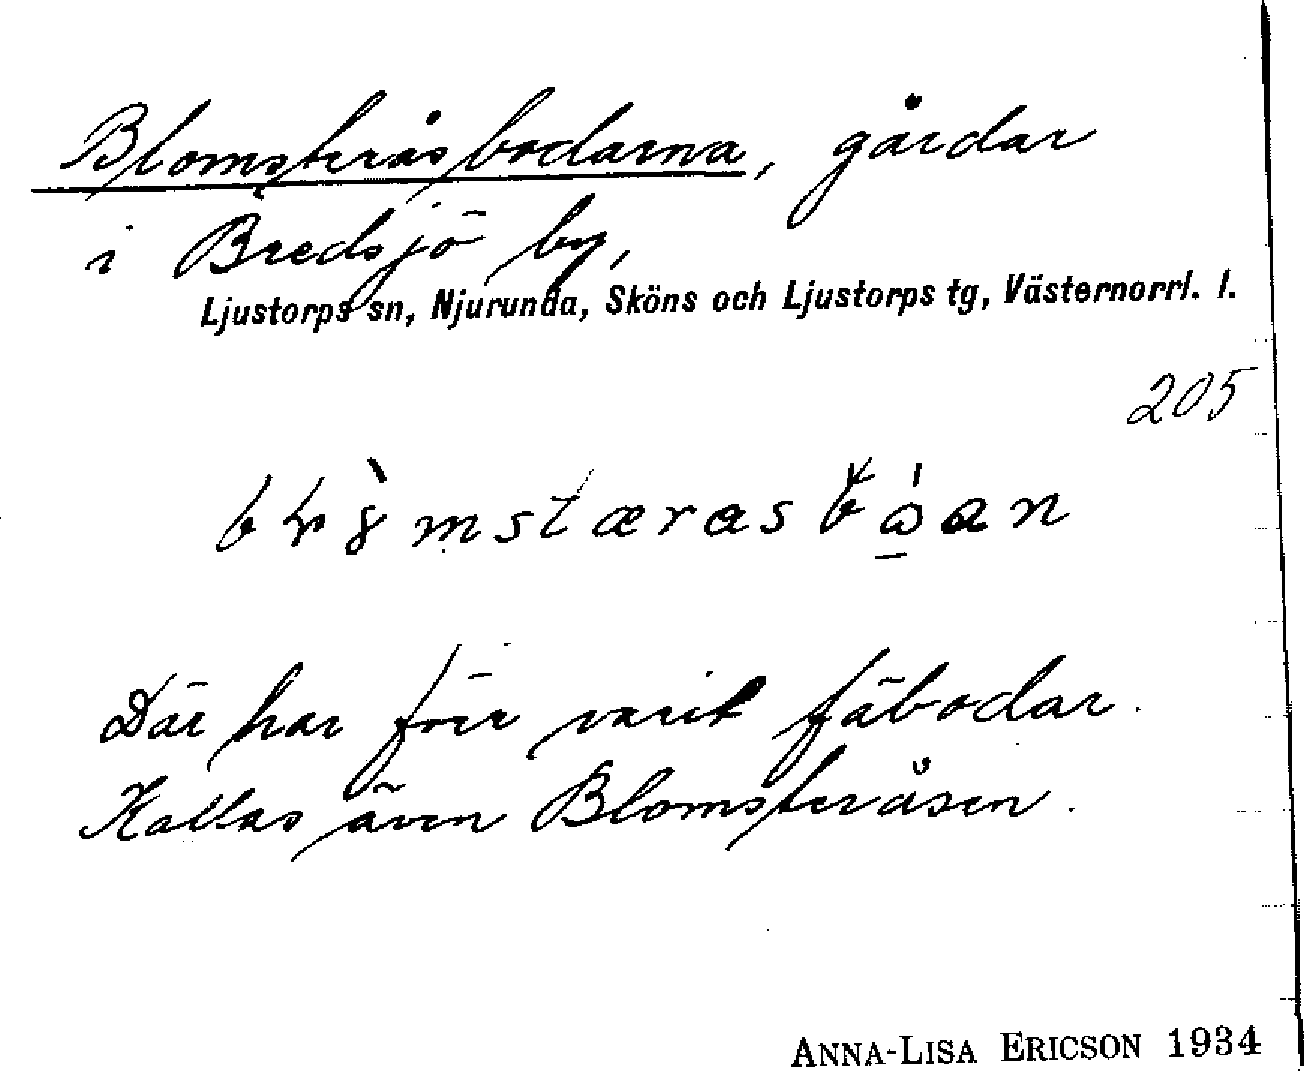 Blomsteråsbodarna, gårdar
i Bredsjö by,
Ljustorps sn, Njurunda, Sköns och Ljustorps tg, Västernorrl. l.
205
Där har förr varit fäbodar.
Kallas även Blomsteråsen.
ANNA-LISA ERICSON 1934